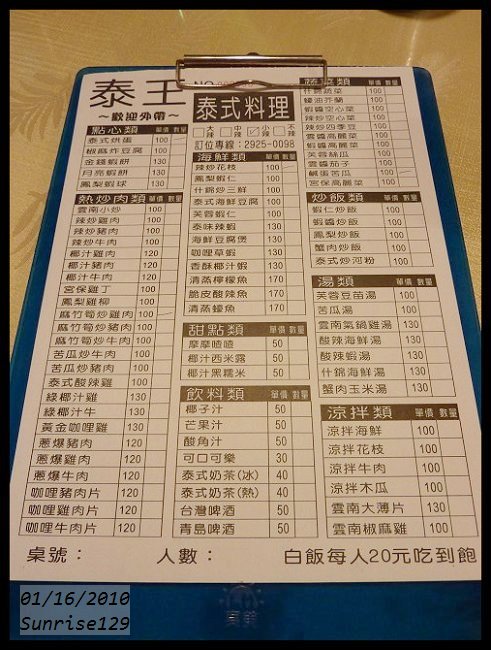 泰王
～歡迎外帶～
NO.
泰式料理
大辣 中辣 小辣 不辣
訂位專線：2925-0098
點心類 單價 數量
泰式烘蛋 100
椒麻炸豆腐 100
金錢蝦餅 100
月亮蝦餅 100
鳳梨蝦球 130
熱炒肉類 單價 數量
雲南小炒 100
辣炒雞肉 100
辣炒豬肉 100
辣炒牛肉 100
椰汁雞肉 100
椰汁豬肉 100
椰汁牛肉 100
宮保雞丁 100
鳳梨雞柳 100
麻竹筍炒雞肉 100
麻竹筍炒豬肉 100
麻竹筍炒牛肉 100
苦瓜炒牛肉 100
苦瓜炒豬肉 100
泰式酸辣雞 100
綠椰汁雞 130
綠椰汁牛 130
黃金咖哩雞 130
蔥爆豬肉 120
蔥爆雞肉 120
蔥爆牛肉 120
咖哩豬肉片 120
咖哩雞肉片 120
咖哩牛肉片 120
海鮮類 單價 數量
辣炒花枝 100
鳳梨蝦仁 100
什錦炒三鮮 100
泰式海鮮豆腐 100
芙蓉蝦仁 100
泰味辣蝦 130
海鮮豆腐煲 130
咖哩草蝦 130
香酥椰汁蝦 130
清蒸檸檬魚 170
脆皮酸辣魚 170
清蒸蠔魚 170
甜點類 單價 數量
摩摩喳喳 50
椰汁西米露 50
椰汁黑糯米 50
飲料類 單價 數量
椰子汁 50
芒果汁 50
酸角汁 50
可口可樂 30
泰式奶茶(冰) 40
泰式奶茶(熱) 40
台灣啤酒 50
青島啤酒 50
蔬菜類 單價 數量
什錦蔬菜 100
蠔油芥蘭 100
蝦醬空心菜 100
辣炒空心菜 100
辣炒四季豆 100
雲醬高麗菜 100
蝦醬高麗菜 100
芙蓉絲瓜 100
雲醬茄子 100
鹹蛋苦瓜 100
宮保高麗菜 100
炒飯類 單價 數量
蝦仁炒飯 100
蝦醬炒飯 100
鳳梨炒飯 100
蟹肉炒飯 100
泰式炒河粉 100
湯類 單價 數量
芙蓉豆苗湯 100
苦瓜湯 100
雲南氣鍋雞湯 130
酸辣海鮮湯 130
酸辣蝦湯 130
什錦海鮮湯 130
蟹肉玉米湯 130
涼拌類 單價 數量
涼拌海鮮 100
涼拌花枝 100
涼拌牛肉 100
涼拌木瓜 100
雲南大薄片 130
雲南椒麻雞 100
桌號： 人數： 白飯每人20元吃到飽
01/16/2010
Sunrise129